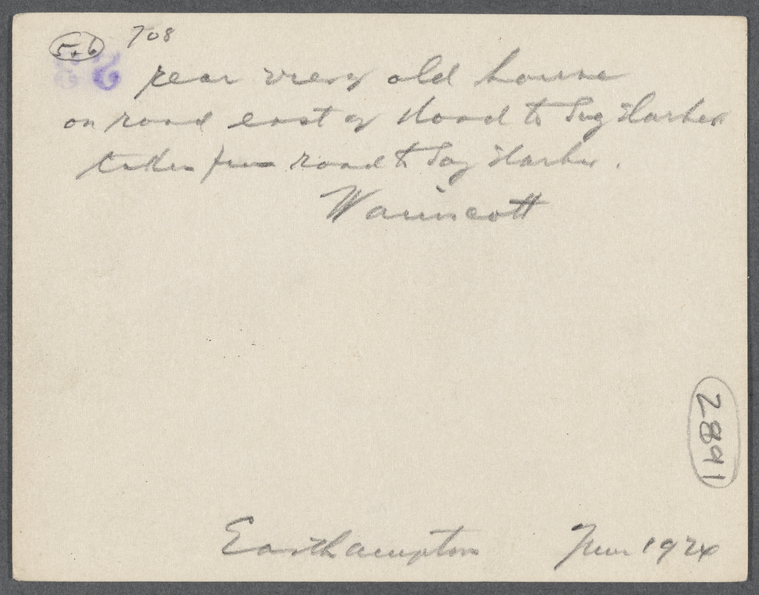 5+6 708
rear view old house
on road east of road to Sag Harbor
taken from road to Sag Harbor.
Wainscott
2891
Easthampton June 1924